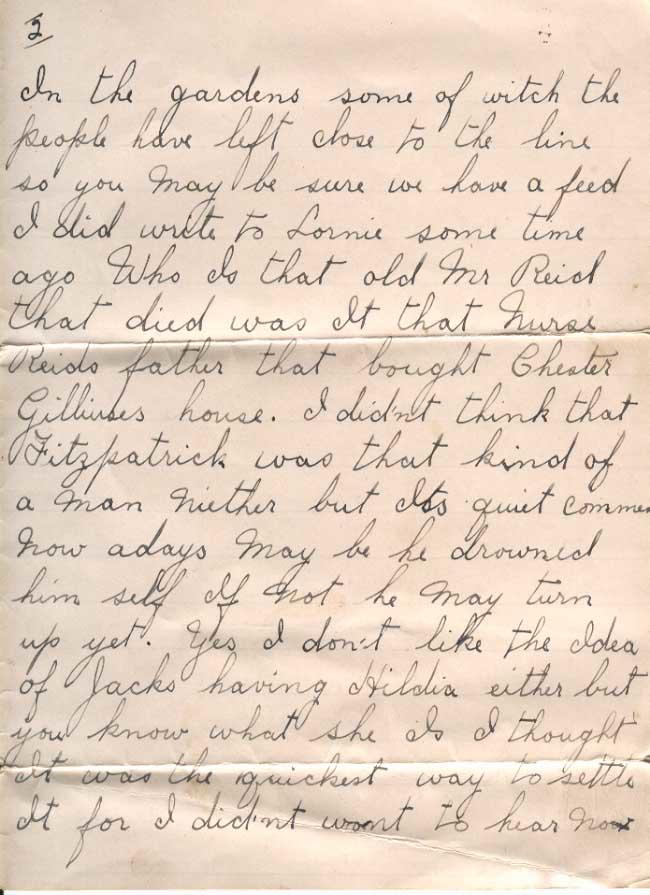 2
In the gardens some of witch the
people have left close to the line
so you May be sure we have a feed
I did write to Lornie some time
ago Who Is that old Mr Reid
that died was It that Nurse
Reids father that bought Chester
Gilliuses house. I did'nt think that
Fitzpatrick was that kind of
a man niether but Its quiet common
now adays May be he drowned
him self If not he may turn
up yet. Yes I don't like the Idea
of Jacks having Hildia either but
you know what she Is I thought
It was the quickest way to settle
It for I did'nt want to hear now